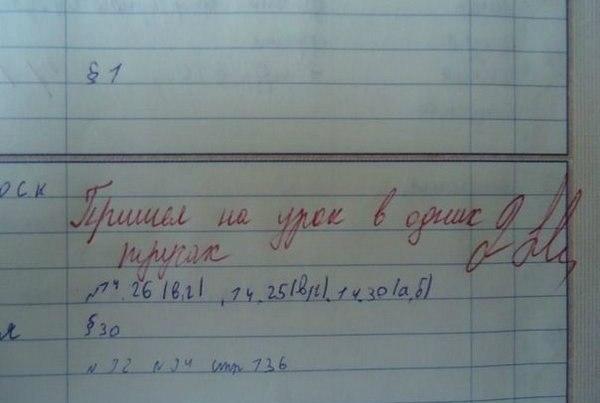 § 1
оск Пришел на урок в одних 2
трусах
№14.26(в,г), 14.25(в,г), 14.30(а,б)
я §30
№32 №34 стр 136